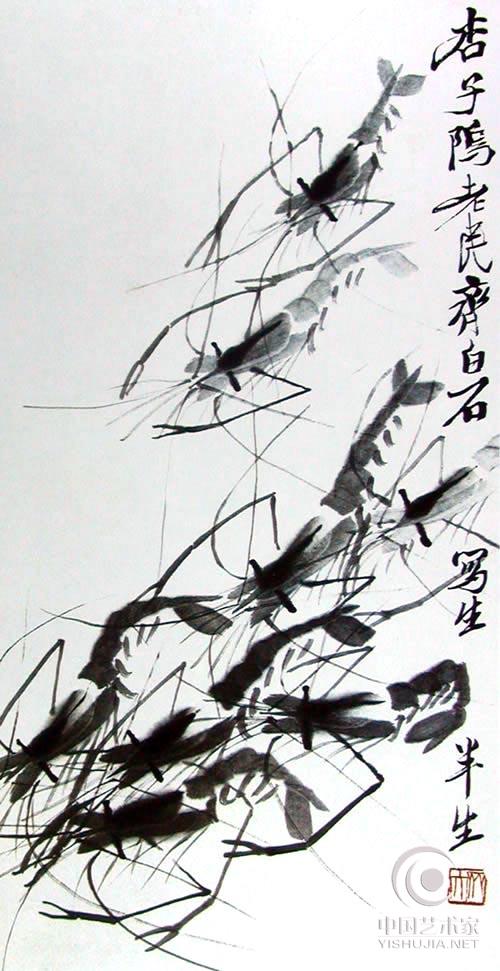 杏子隖老民齊白石
寫生
半生
中国艺术家
YISHUJIA.NET